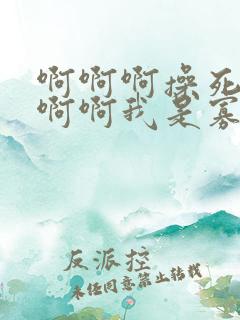 啊啊啊操死
啊啊我是寡
反派控
未经同意禁止转载